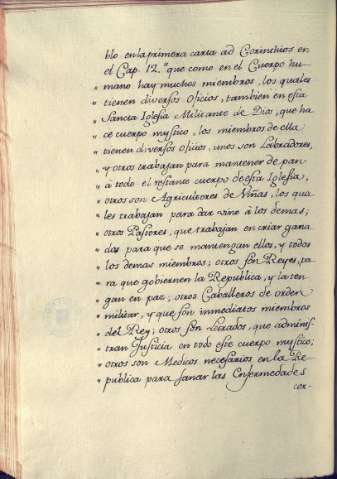 blo en la primera carta ad Corinthios en
el Cap. 12.º que como en el Cuerpo hu-
" mano hay muchos miembros, los quales
" tienen diversos oficios, tambien en esta
" Sancta Iglesia Militante de Dios, que ha-
" ce cuerpo mystico, los miembros de ella
" tienen diversos oficios, unos son Labradores,
" y otros trabajan para mantener de pan
" a todo el restante cuerpo de esta Iglesia,
" otros son Agricultores de Viñas, los qua-
" les trabajan para dar vino à los demas;
" otros Pastores, que trabajan en criar gana-
" dos para que se mantengan ellos, y todos
" los demas miembros; otros son Reyes, pa-
" ra que gobiernen la Republica, y la ten-
" gan en paz; otros Caballeros de orden
" militar, y que son inmediatos miembros
" del Rey; otros son Letrados, que adminis-
" tran Justicia en todo este cuerpo mystico;
" otros son Medicos necesarios en la Re-
" publica para sanar las Enfermedades
cor-